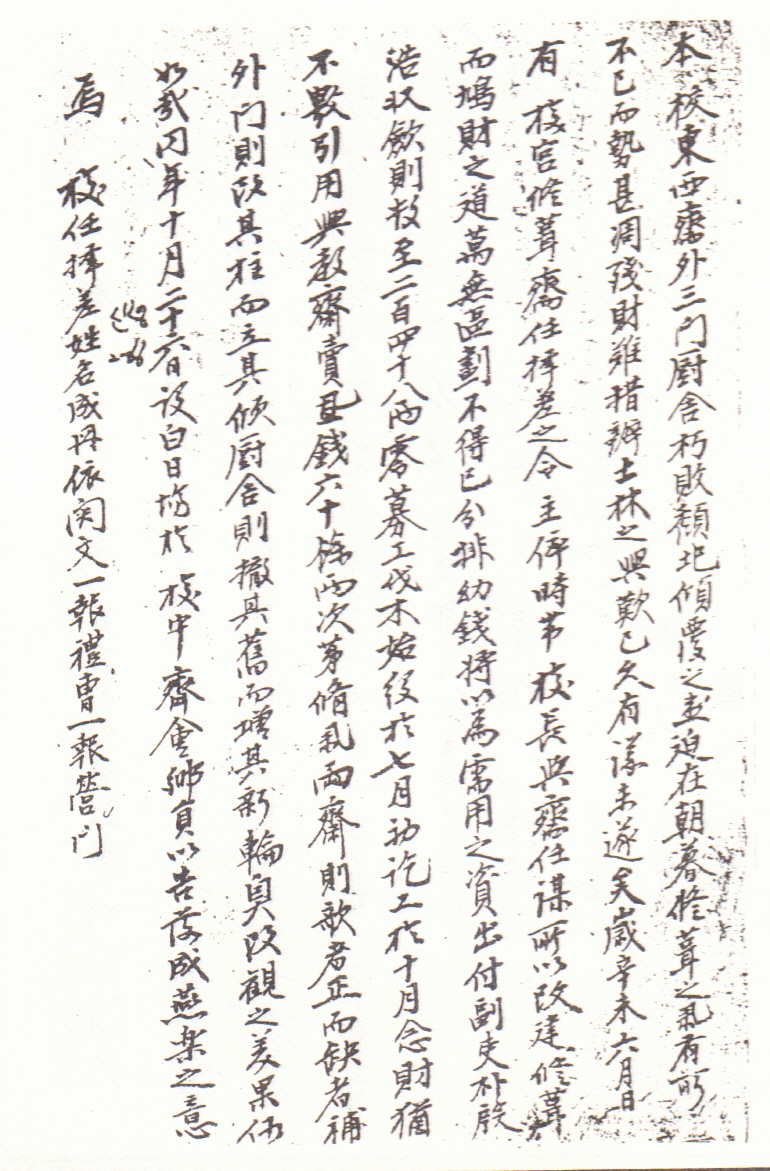 本校東西齋外三門厨舍朽敗頹圮傾覆之患迫在朝暮修葺之氣有所
不已而勢甚凋殘財難措辦士林之興歎已久有議未遂矣歲辛未六月日
有 校宮修葺齋任擇差之令 主倅時 校長與齋任謀所以改建修葺
而鳩財之道萬無區劃不得已分排幼錢將以爲需用之資出付副吏補
浩収斂則救至二百四十八兩零募工伐木始役於七月初訖工於十月念財猶
不數引用興敎齋賣畓錢六十餘兩次第脩氣兩齋則欹者正而缺者補
外門則改其柱而立其傾厨舍則撤其舊而增其新輪奐改觀之美果
如哉同年十月二十六日設白日場於 校中齊會鄕員以告落成燕樂之意
焉 校任擇差姓名成冊依関文一報禮曹一報營門